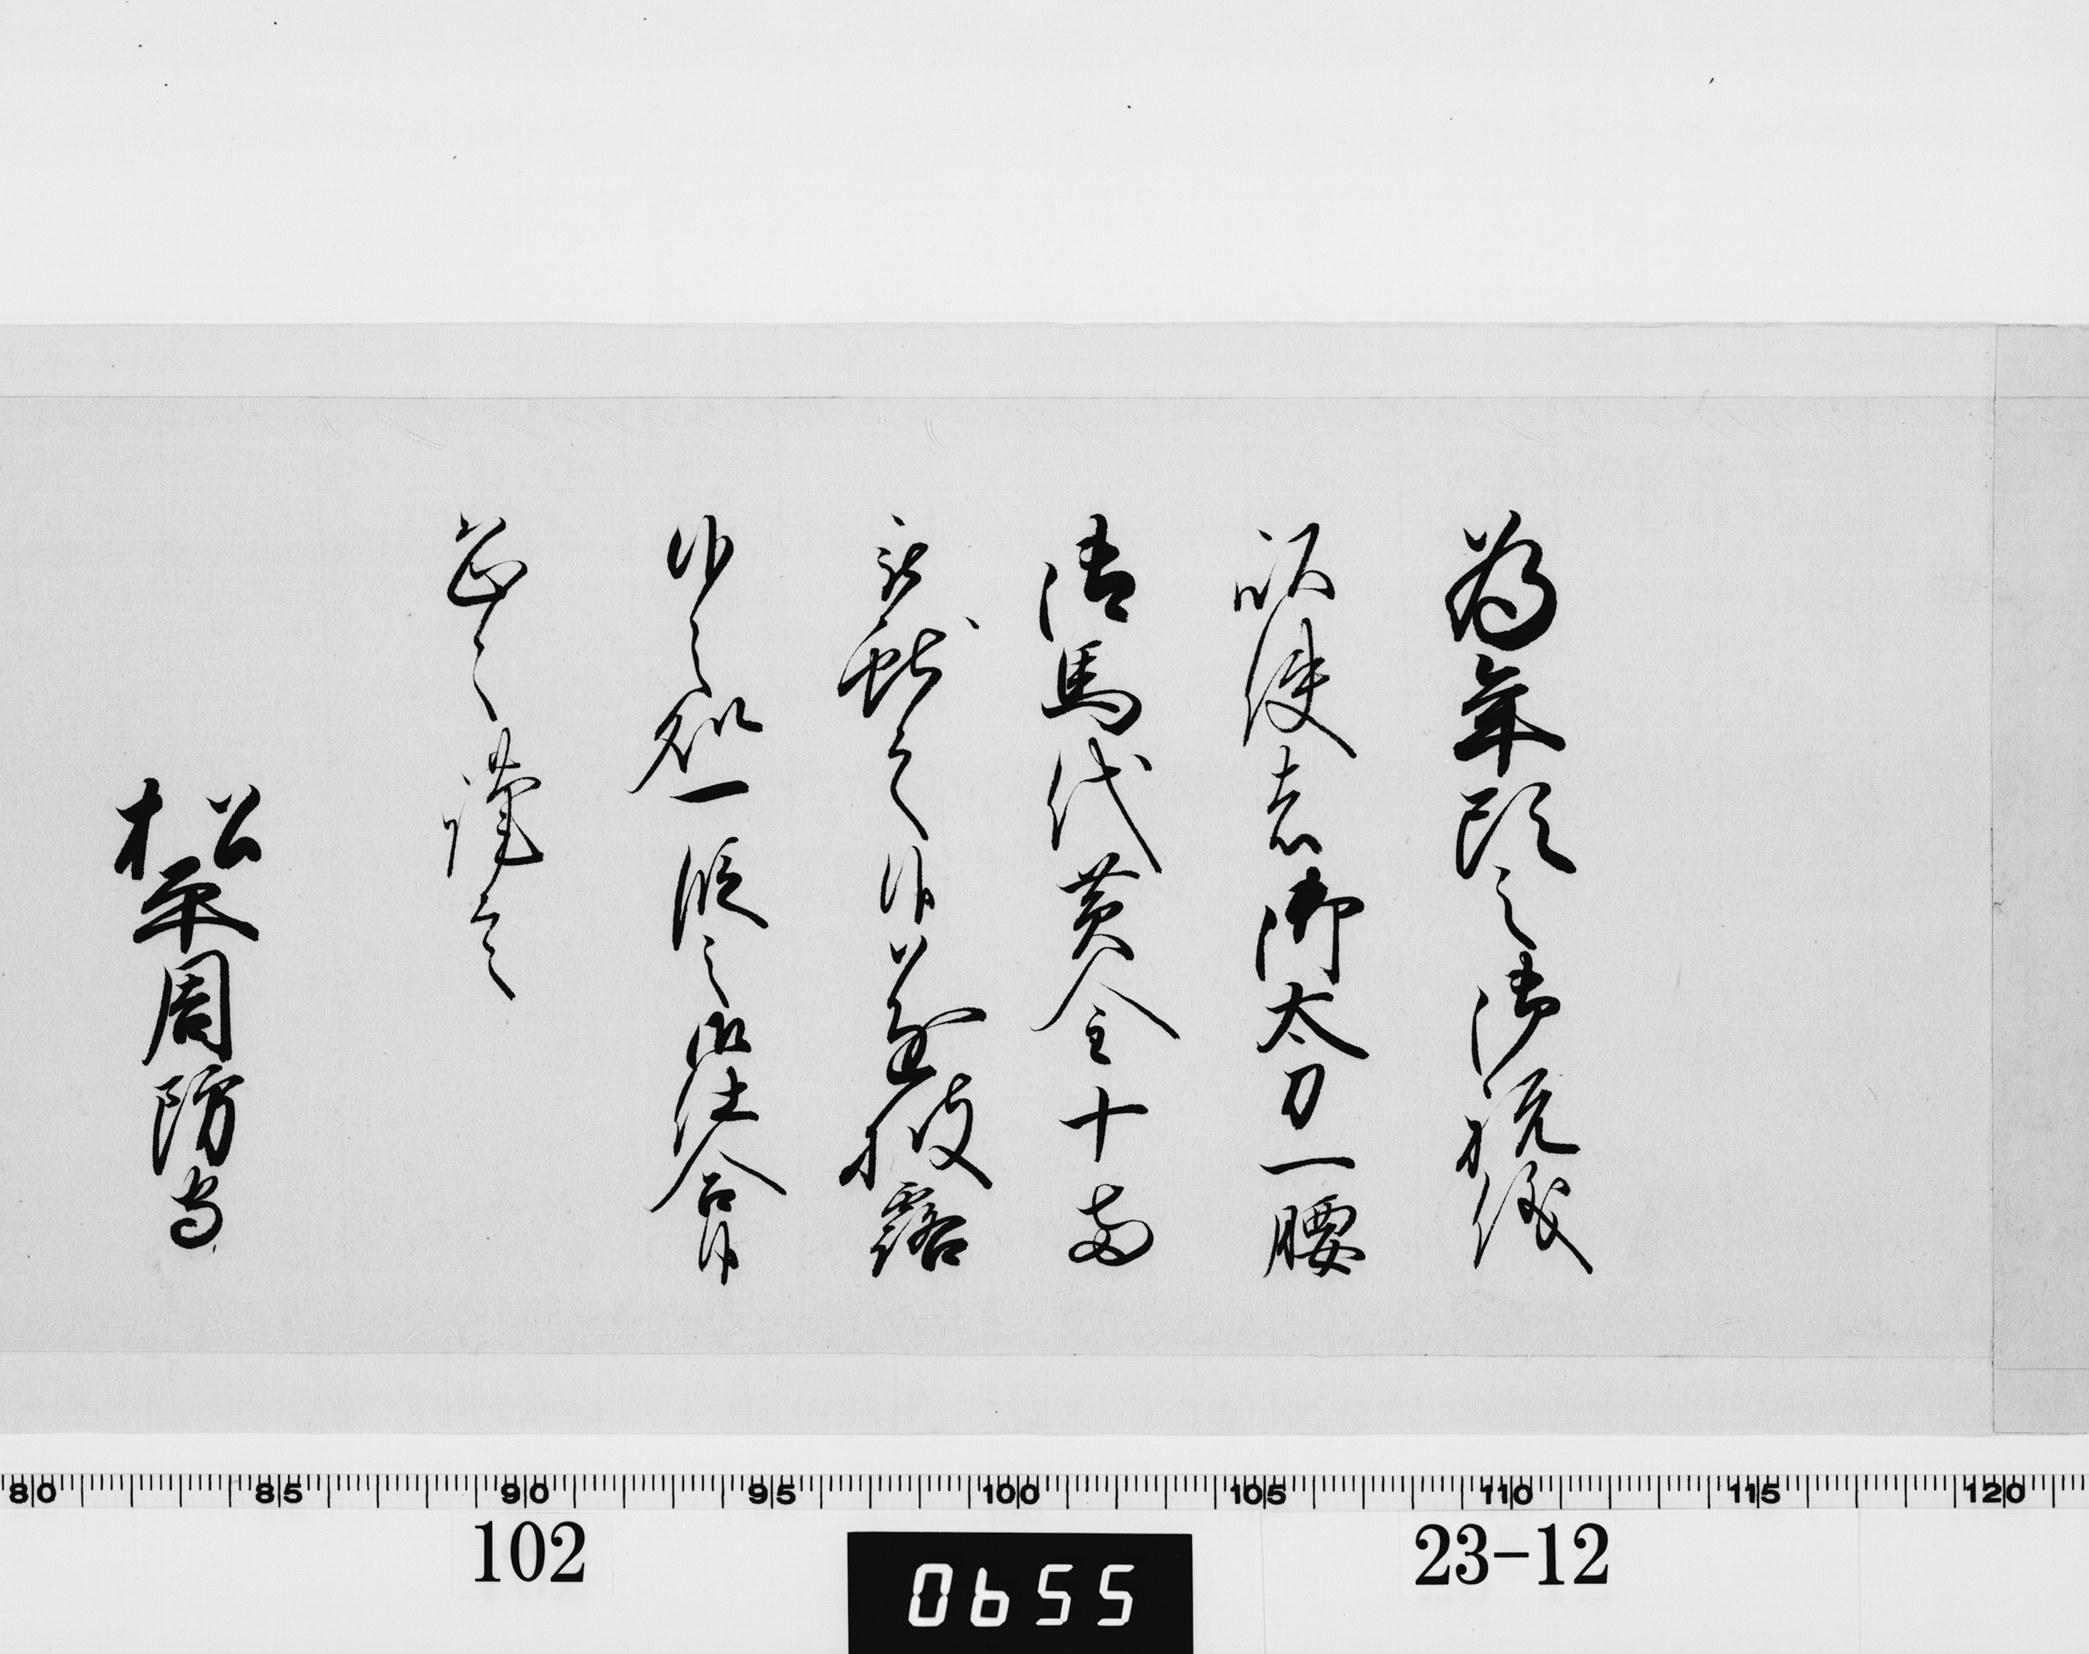 為年頭之御祝儀
以使者御太刀一腰
御馬代黄金十両
被献之候遂披露
候之処一段之御仕合候
恐々謹言
松平周防守
80 85 90 95 100 105 110 115 120
102
0655
23-12